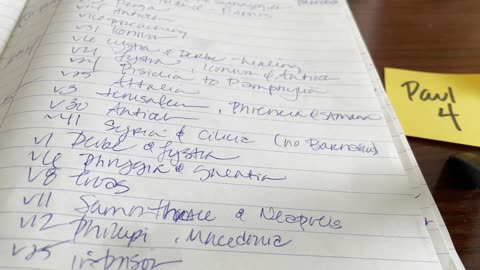 Antioch
v14 preaching
v51 Iconium
v6 Lystra & Derbe - healing
v21 Lystra, Iconium & Antioch
v24 Pisidia to Pamphylia
v25 Attalia
v3 Jerusalem, Phoenicia & Samaria
v30 Antioch
~41 Syria & Cilicia (no Barnabas)
v1 Derbe & Lystra
v6 Phrygia & Galatia
v8 Troas
v11 Samothrace & Neapolis
v12 Philippi, Macedonia
v25 in prison
Paul
4